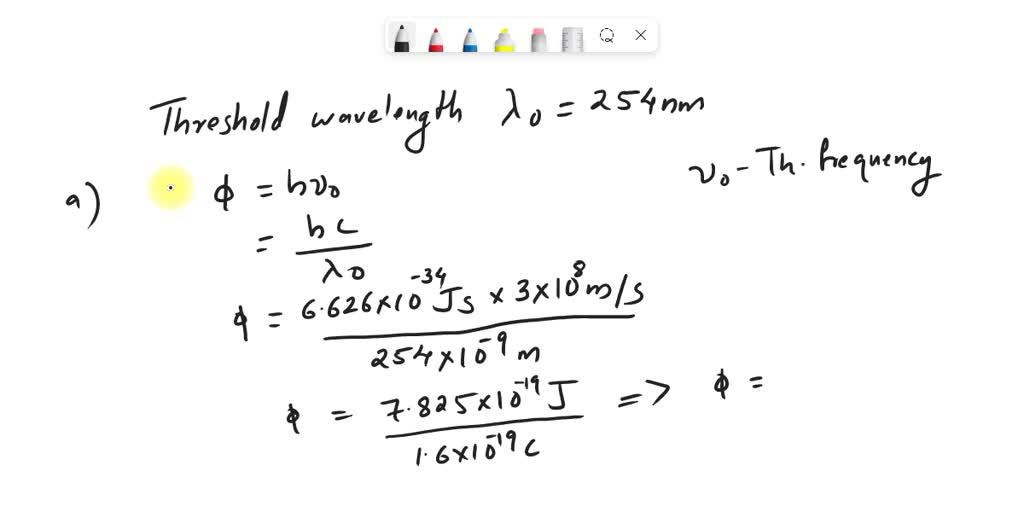 Threshold wavelength λ0 = 254nm
ν0 - Th. frequency
a) ϕ = hν0
= hc / λ0
ϕ = 6.626×10^-34 Js × 3×10^8 m/s / 254×10^-9 m
ϕ = 7.825×10^-19 J / 1.6×10^-19 C => ϕ =